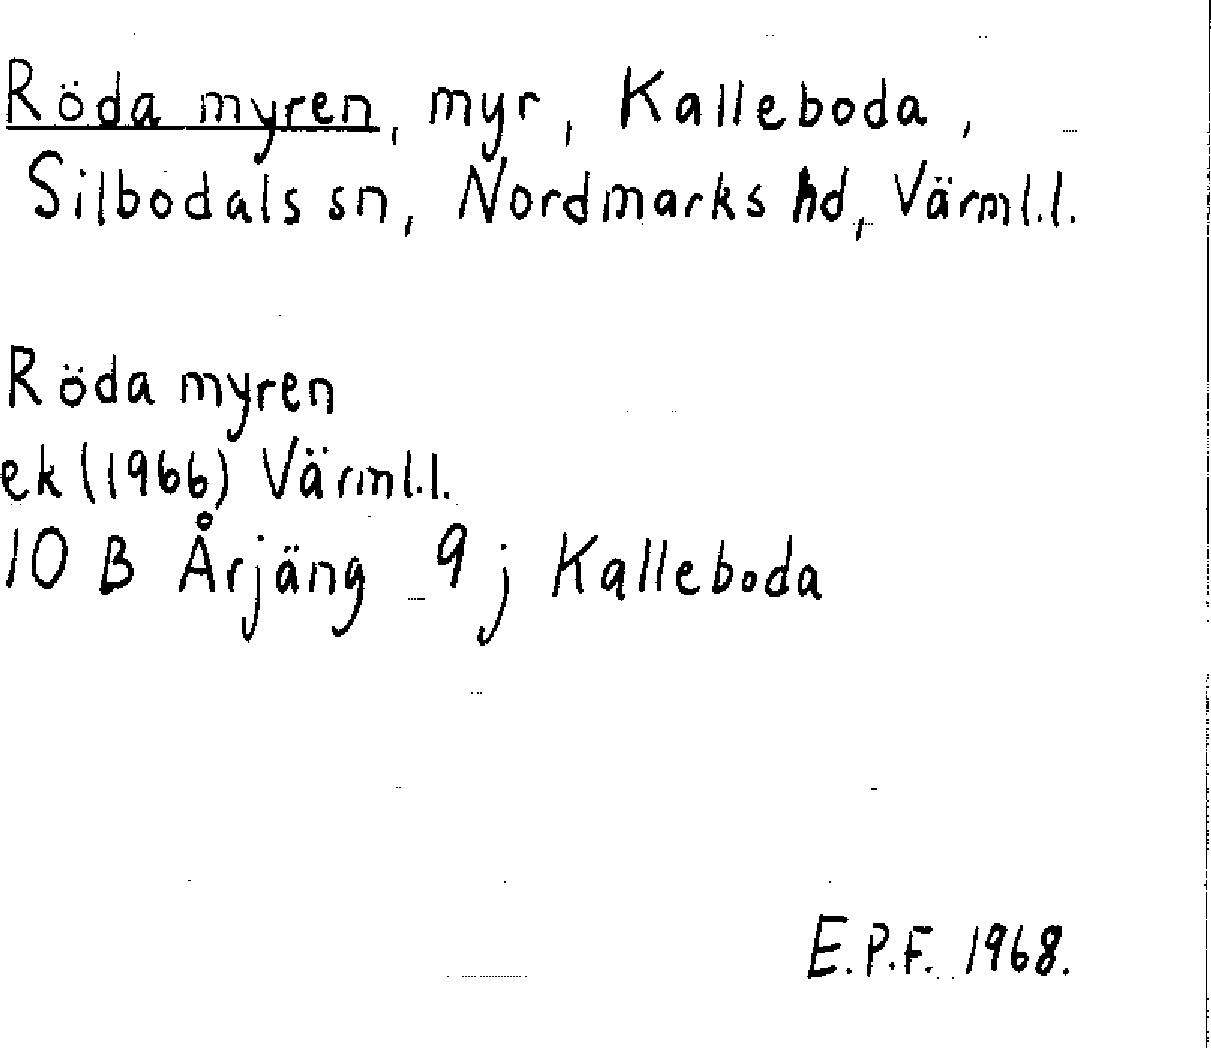 Röda myren, myr, Kalleboda,
Silbodals sn, Nordmarks hd, Värml.l.
Röda myren
ek (1966) Värml.l.
10 B Årjäng 9 j Kalleboda
E.P.F. 1968.